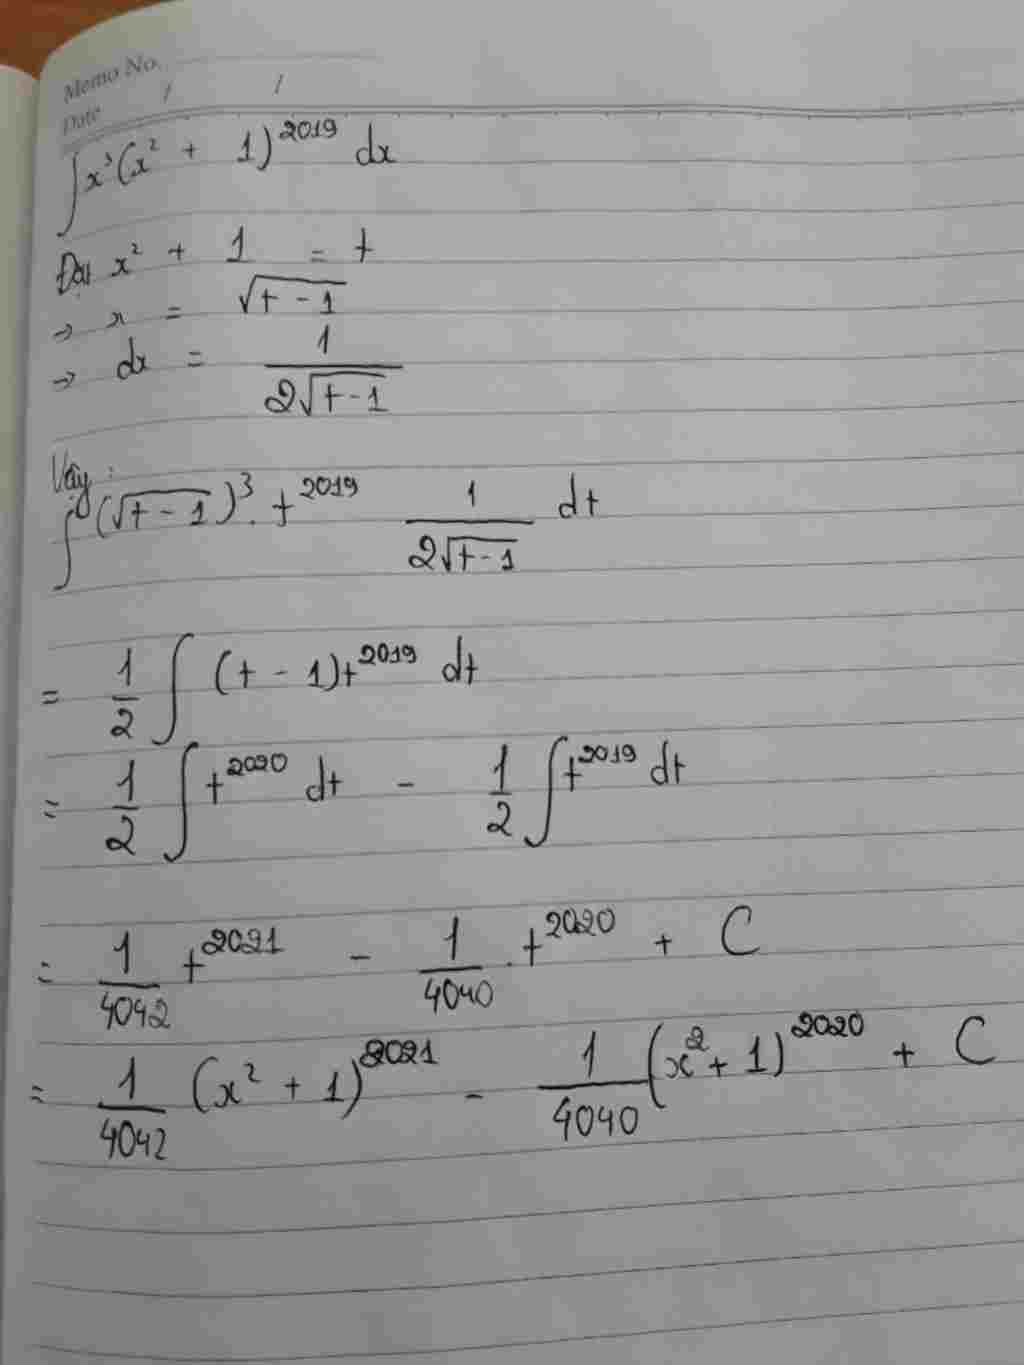 Memo No.
Date / /
∫x³(x² + 1)²⁰¹⁹ dx
Đặt x² + 1 = t
→ x = √(t - 1)
→ dx = 1/(2√(t - 1))
Vậy:
∫(√(t - 1))³ . t²⁰¹⁹ 1/(2√(t - 1)) dt
= 1/2 ∫ (t - 1)t²⁰¹⁹ dt
= 1/2 ∫ t²⁰²⁰ dt - 1/2 ∫ t²⁰¹⁹ dt
= 1/4042 t²⁰²¹ - 1/4040 . t²⁰²⁰ + C
= 1/4042 (x² + 1)²⁰²¹ - 1/4040 (x² + 1)²⁰²⁰ + C